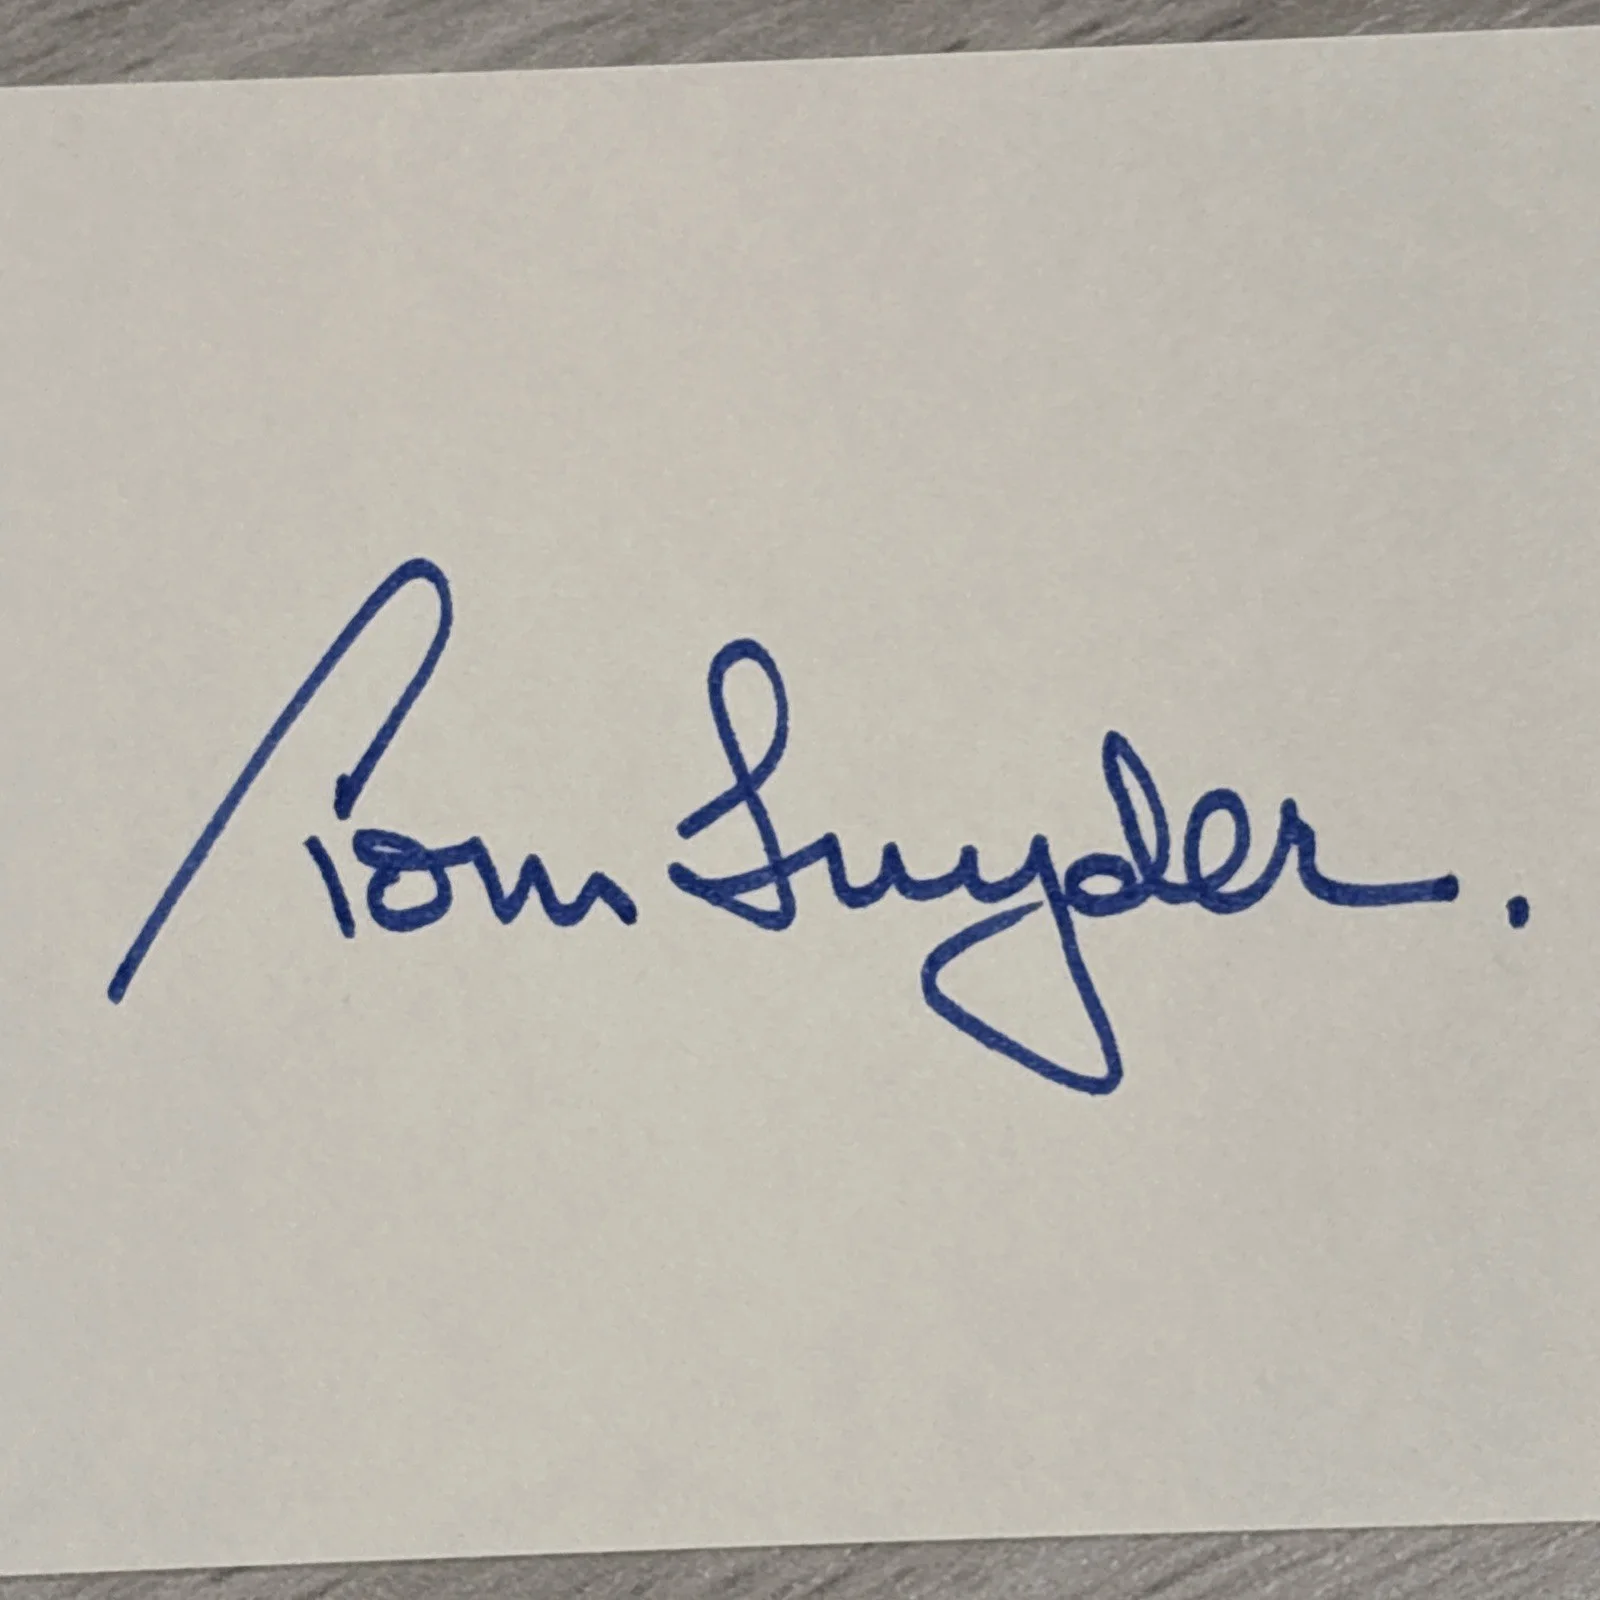 Tom Snyder.